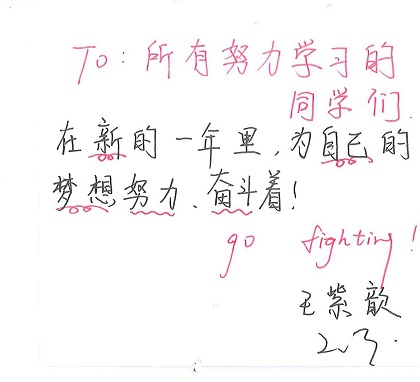 To：所有努力学习的
同学们.
在新的一年里，为自己的
梦想努力、奋斗着！
go fighting！
王紫歆
2.3.